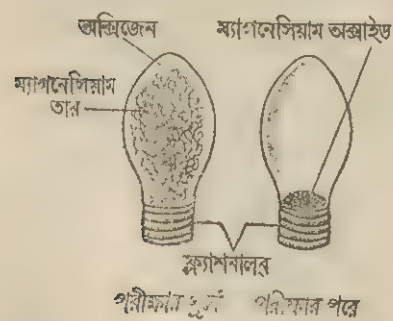 অক্সিজেন
ম্যাগনেসিয়াম অক্সাইড
ম্যাগনেসিয়াম
তার
ফ্ল্যাশবাল্ব
পরীক্ষার পূর্বে
পরীক্ষার পরে